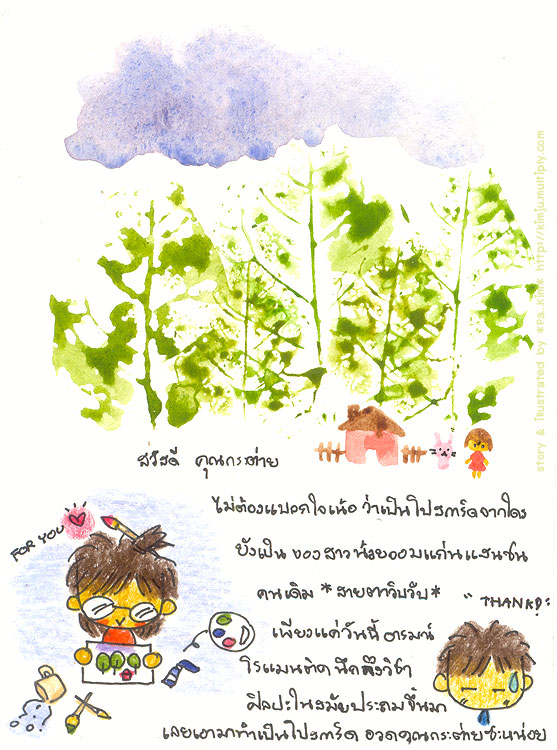 story & illustrated by *Pa.kim* http://kimju.multiply.com
สวัสดี คุณกระต่าย
FOR YOU
ไม่ต้องแปลกใจเน้อ ว่าเป็นโปสการ์ดจากใคร
ยังเป็น ของสาวน้อยจอมแก่นแสนซน
คนเดิม *สายตาวิบวับ*
"THANKS"
เพียงแค่วันนี้ อารมณ์
โรแมนติค นึกถึงวิชา
ศิลปะในสมัยประถมขึ้นมา
เลยเอามาทำเป็นโปสการ์ด อวดคุณกระต่ายซะหน่อย